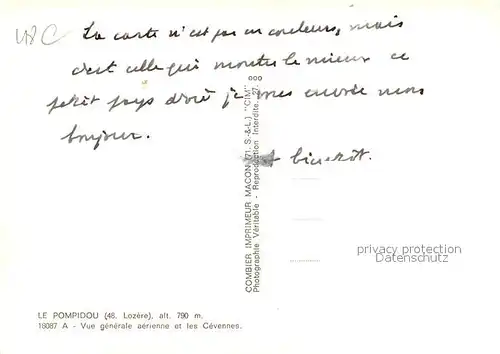 48 C
La carte n'est pas en couleurs, mais
c'est celle qui montre le mieux ce
petit pays d'où je vous envoie mon
bonjour.
bientôt.
COMBIER IMPRIMEUR MACON (71, S.-&-L.) "CIM"
Photographie Véritable - Reproduction Interdite. 27.
privacy protection
delcampe.net
LE POMPIDOU (48. Lozère), alt. 790 m.
18087 A - Vue générale aérienne et les Cévennes.